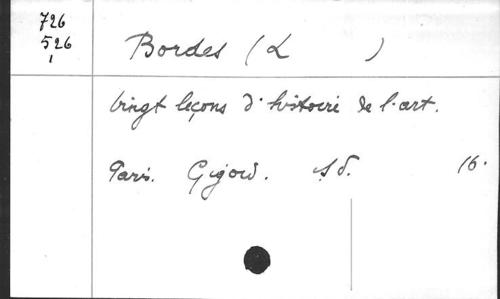 726
526
1
Bordes (L )
Vingt leçons d'histoire de l'art.
Paris. Gigord. s d. 16.